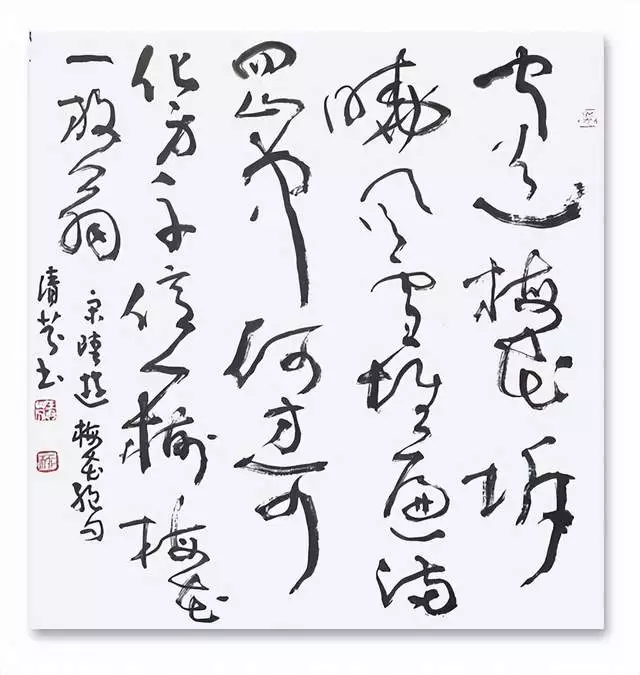 闻道梅花坼
晓风雪堆遍满
四山中何方可
化身千亿一树梅花
一放翁
宋陆游梅花绝句
清芬书